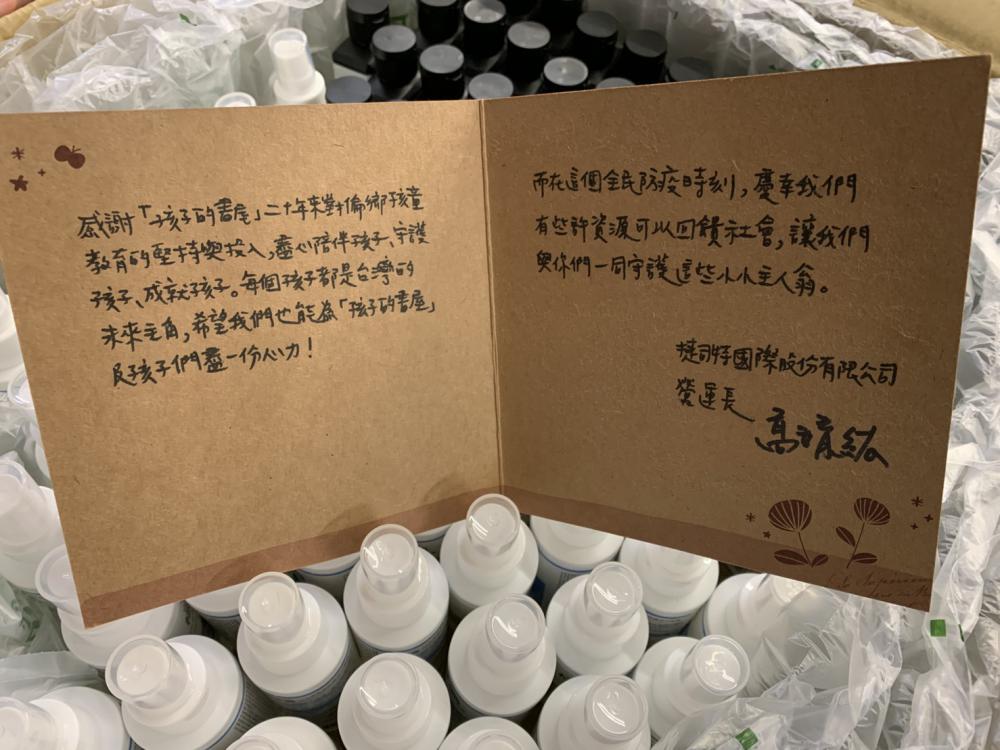 感謝「孩子的書屋」二十年來對偏鄉孩童
教育的堅持與投入,盡心陪伴孩子、守護
孩子、成就孩子。每個孩子都是台灣的
未來主角,希望我們也能為「孩子的書屋」
及孩子們盡一份心力!
而在這個全民防疫時刻,慶幸我們
有些許資源可以回饋社會,讓我們
與你們一同守護這些小小主人翁。
捷司特國際股份有限公司
營運長